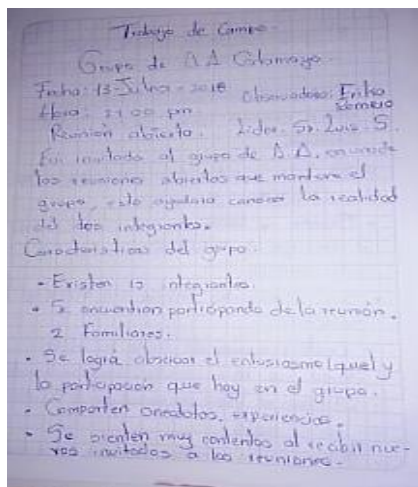 Trabajo de Campo.
Grupo de AA Catamayo.
Fecha: 13 Julio - 2018 Observadora: Erika
Hora: 21:00 pm Romero
Reunión abierta. Lider. Sr. Luis S.
Fui invitada al grupo de AA. en una de
las reuniones abiertas que mantiene el
grupo, esto ayudaria conocer la realidad
de los integrantes.
Caracteristicas del grupo.
• Existen 15 integrantes.
• Se encuentran participando de la reunión.
2 Familiares.
• Se logra observar el entusiasmo y
la participación que hay en el grupo.
• Comparten anecdotas, experiencias.
• Se sienten muy contentos al recibir nue-
vos invitados a las reuniones.